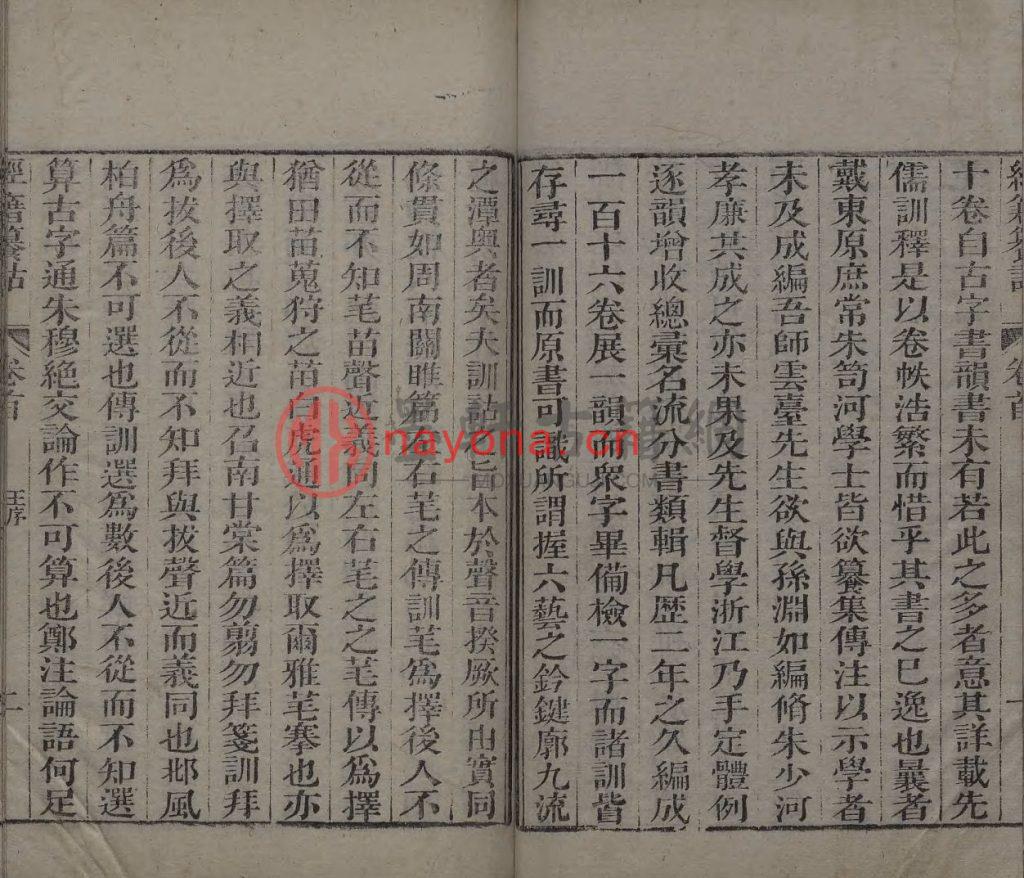 十卷自古字書韻書未有若此之多者意其詳載先
儒訓釋是以卷帙浩繁而惜乎其書之已逸也曩者
戴東原庶常朱笥河學士皆欲纂集傳注以示學者
未及成編吾師雲臺先生欲與孫淵如編脩朱少河
孝廉共成之亦未果及先生督學浙江乃手定體例
逐韻增收總彙名流分書類輯凡歷二年之久編成
一百十六卷展一韻而衆字畢備檢一字而諸訓皆
存尋一訓而原書可識所謂握六藝之鈐鍵廓九流
之潭奧者矣夫訓詁之旨本於聲音揆厥所由實同
條貫如周南關雎篇左右芼之傳訓芼爲擇後人不
從而不知芼苗聲近義同左右芼之之芼傳以爲擇
猶田苗蒐狩之苗白虎通以爲擇取爾雅芼搴也亦
與擇取之義相近也召南甘棠篇勿翦勿拜箋訓拜
爲拔後人不從而不知拜與拔聲近而義同也邶風
柏舟篇不可選也傳訓選爲數後人不從而不知選
算古字通朱穆絕交論作不可算也鄭注論語何足
經籍籑詁 卷首 王序 二
nayona.cn